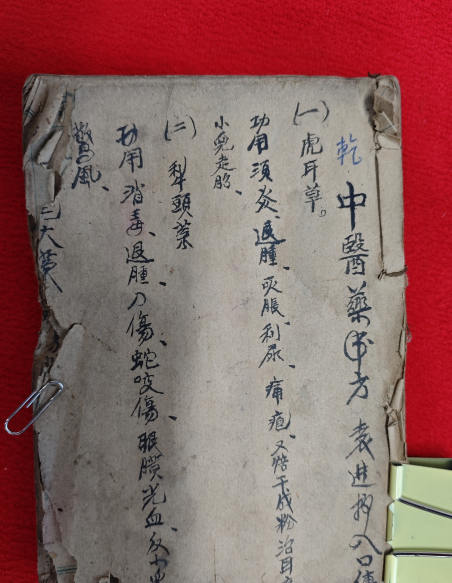 乾
中醫藥方 袁進 入口
(一) 虎耳草。
功用 須炎、退腫、灰脹、利尿、痛疱、又焙干成粉治耳
小兒走胎、
(二) 犁頭葉
功用 消毒、退腫、刀傷、蛇咬傷、眼膜光血、及小
驚風、
三 大